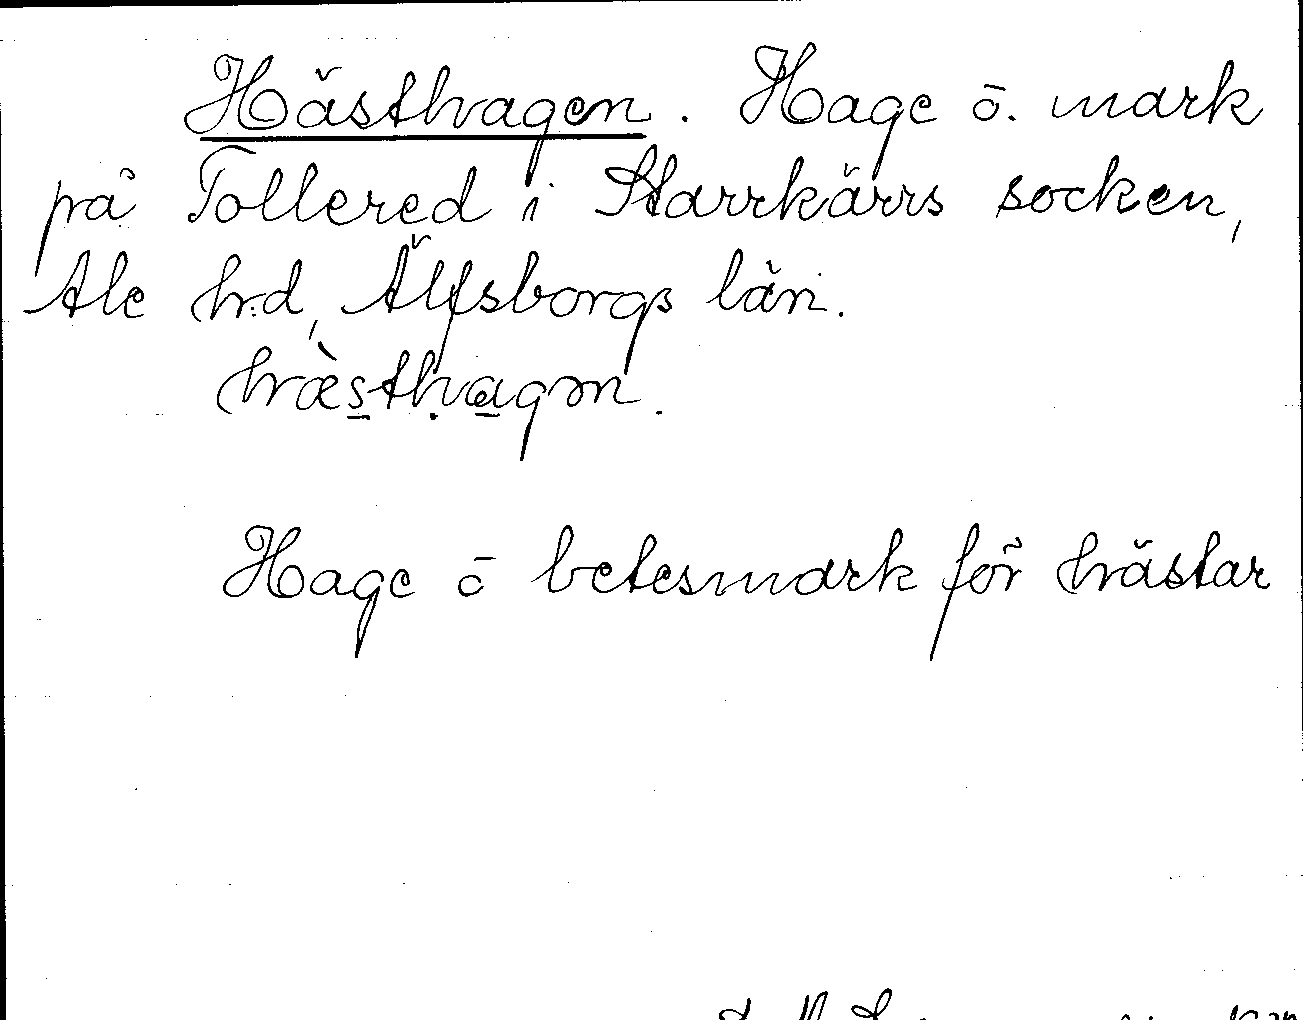 Hästhagen. Hage ō. mark
på Tollered i Starrkärrs socken,
Ale hd, Älfsborgs län.
hæ̀s̱tḥa̱gən.
Hage ō betesmark för hästar